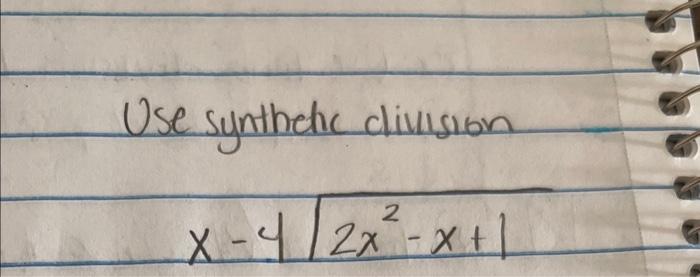 Use synthetic division
x-4 /2x²-x+1